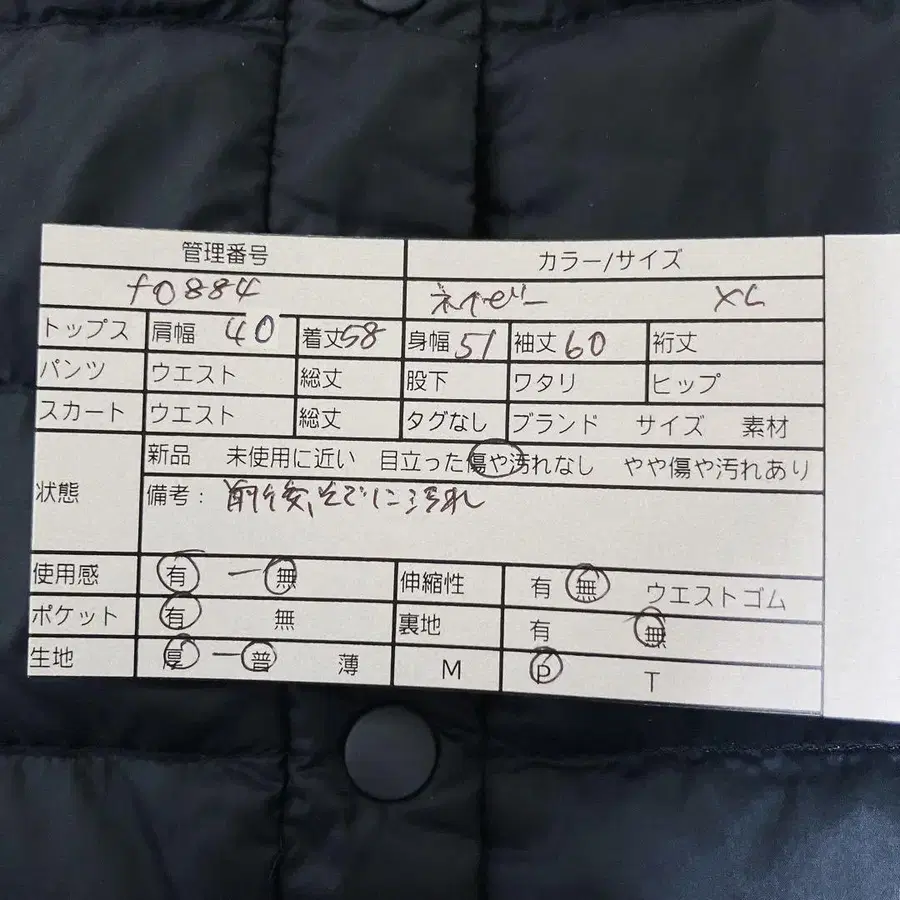 管理番号 カラー/サイズ
f0884 ネイビー XL
トップス 肩幅 40 着丈58 身幅 51 袖丈 60 裄丈
パンツ ウエスト 総丈 股下 ワタリ ヒップ
スカート ウエスト 総丈 タグなし ブランド サイズ 素材
状態 新品 未使用に近い 目立った傷や汚れなし やや傷や汚れあり
備考: 前後、そでに汚れ
使用感 有 ー 無 伸縮性 有 無 ウエストゴム
ポケット 有 無 裏地 有 無
生地 厚 ー 普 薄 M P T